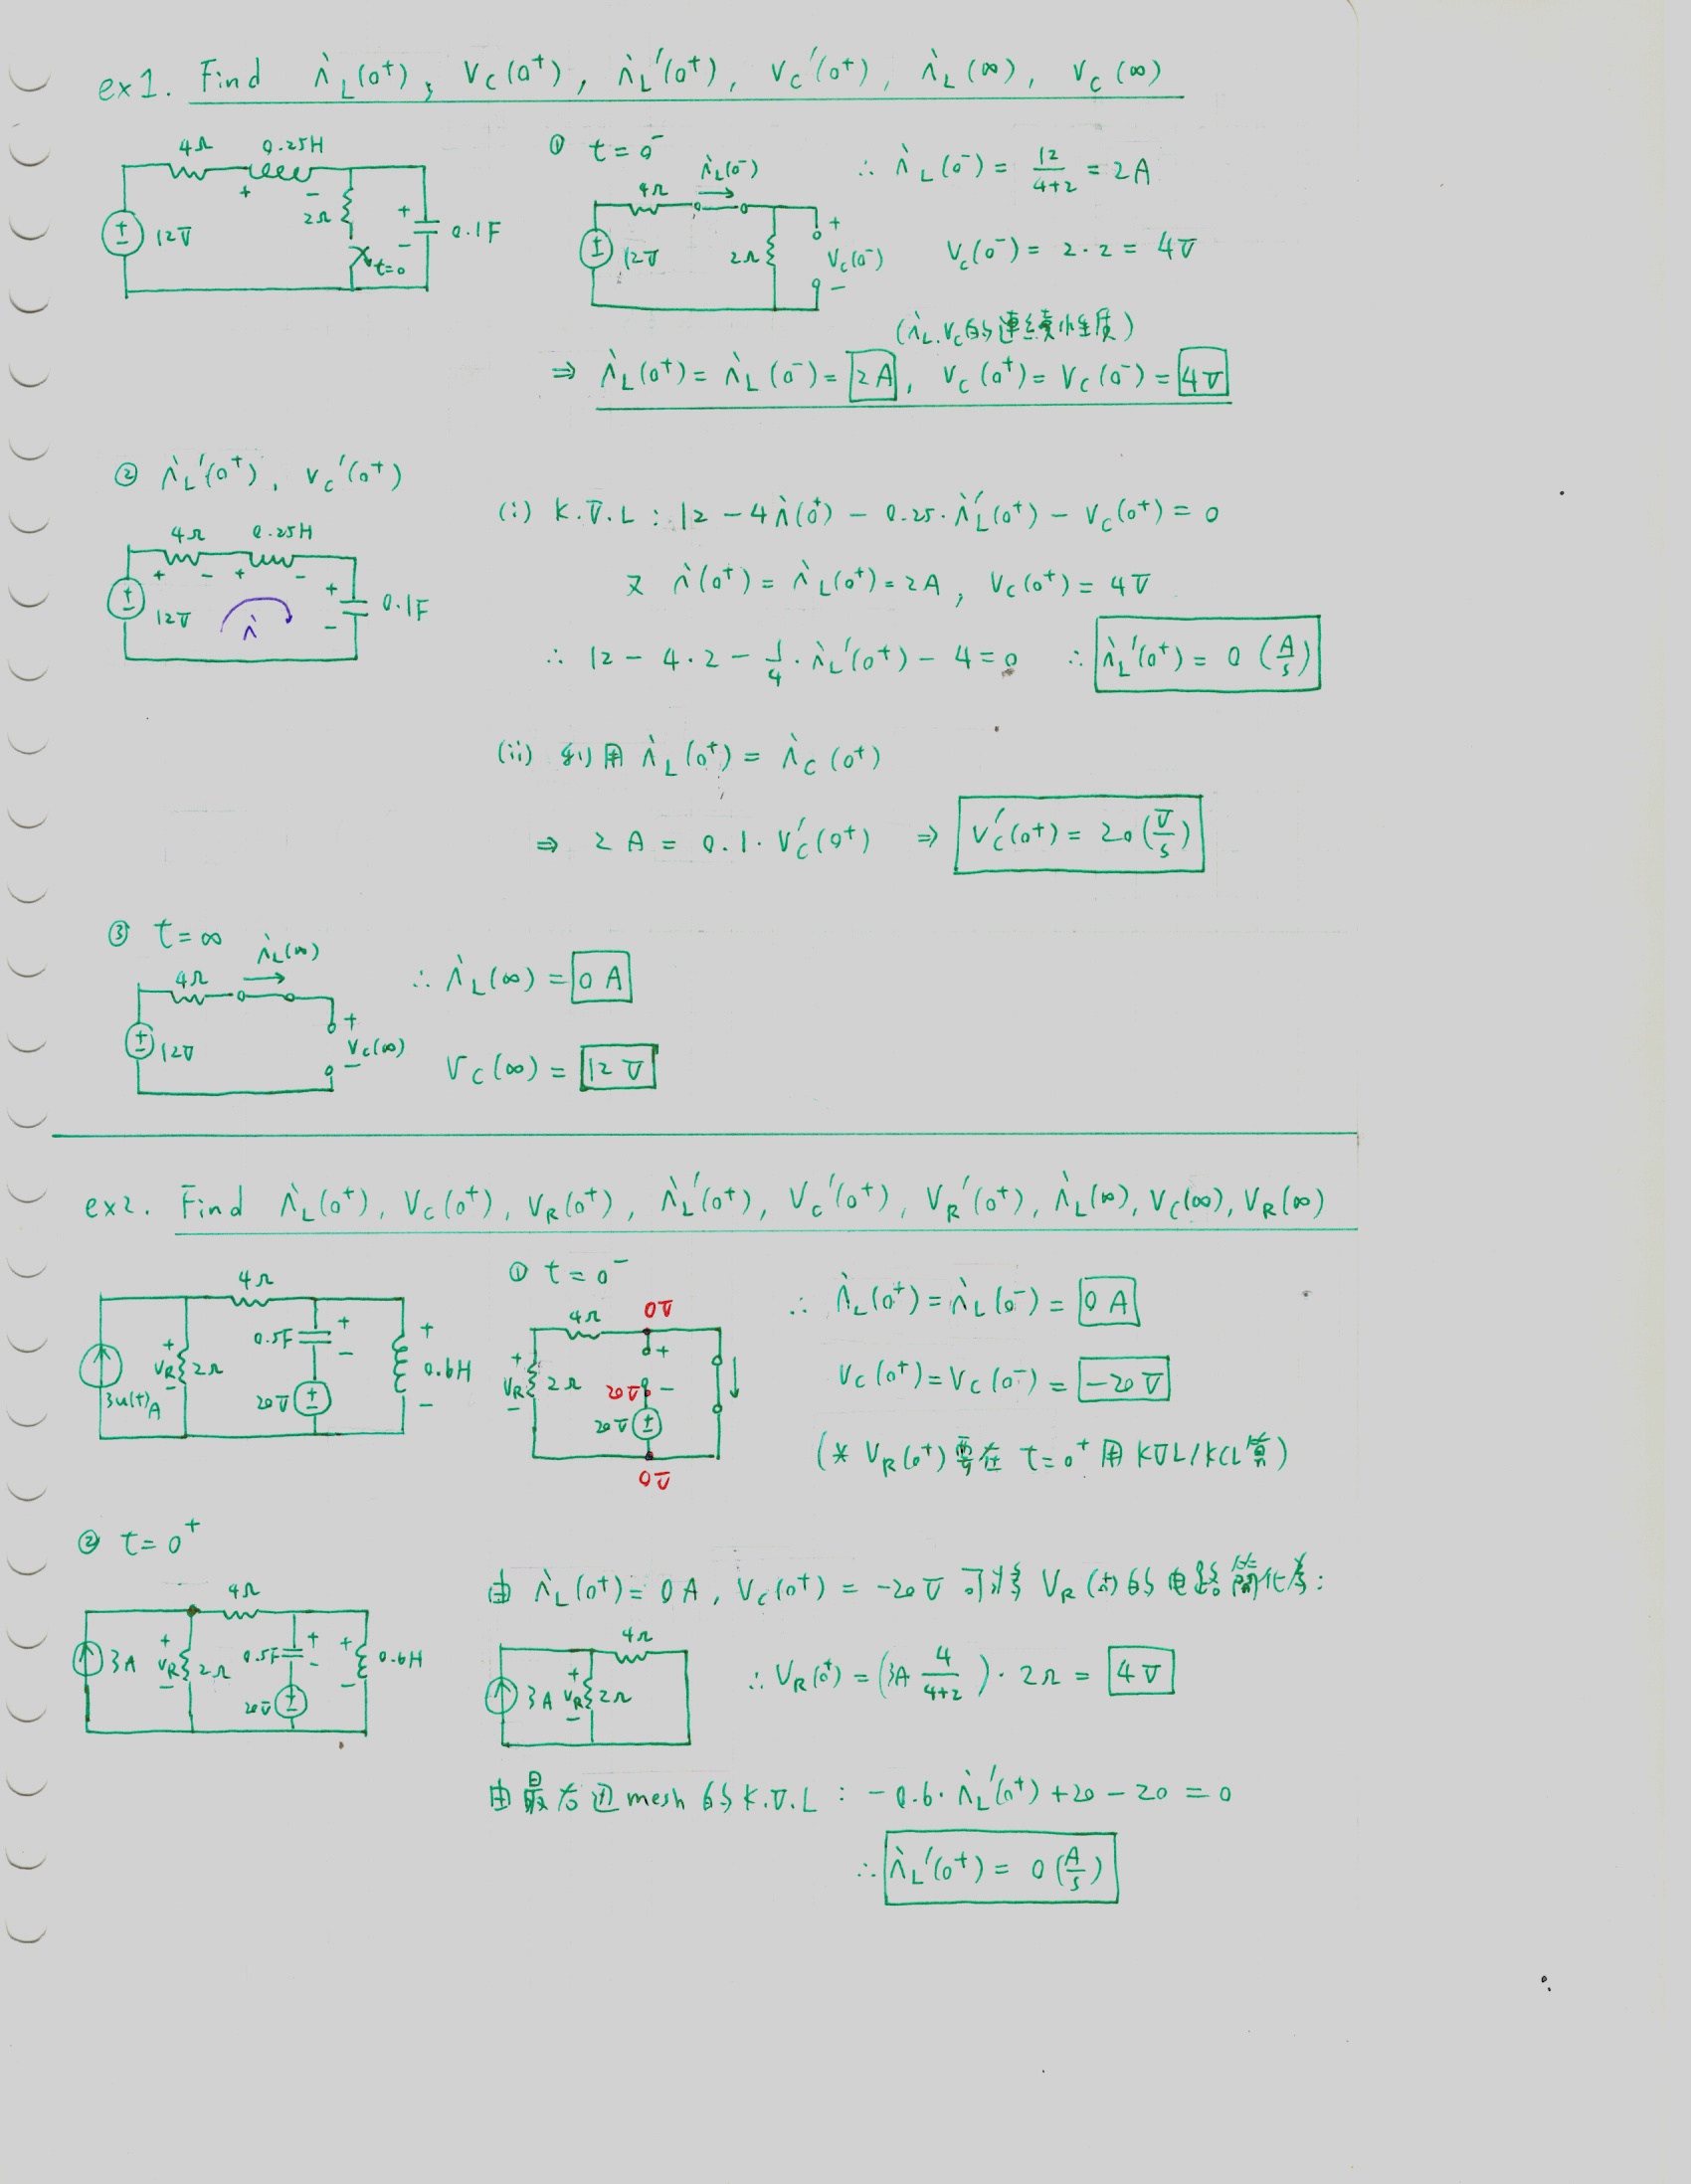 ex1. Find i_L(0⁺), V_C(0⁺), i_L'(0⁺), V_C'(0⁺), i_L(∞), V_C(∞)
4Ω 0.25H
+ −
2Ω
+
−
0.1F
12V
t=0
① t=0⁻
4Ω i_L(0⁻)
12V 2Ω + V_C(0⁻) −
∴ i_L(0⁻) = 12/(4+2) = 2A
V_C(0⁻) = 2·2 = 4V
(i_L.V_C的連續性質)
⇒ i_L(0⁺) = i_L(0⁻) = 2A, V_C(0⁺) = V_C(0⁻) = 4V
② i_L'(0⁺), V_C'(0⁺)
4Ω 0.25H
+ − + −
12V i + − 0.1F
(i) K.V.L : 12 − 4i(0⁺) − 0.25·i_L'(0⁺) − V_C(0⁺) = 0
又 i(0⁺) = i_L(0⁺) = 2A, V_C(0⁺) = 4V
∴ 12 − 4·2 − 1/4·i_L'(0⁺) − 4 = 0 ∴ i_L'(0⁺) = 0 (A/s)
(ii) 利用 i_L(0⁺) = i_C(0⁺)
⇒ 2A = 0.1·V_C'(0⁺) ⇒ V_C'(0⁺) = 20(V/s)
③ t=∞
4Ω i_L(∞)
12V + V_C(∞) −
∴ i_L(∞) = 0 A
V_C(∞) = 12 V
ex2. Find i_L(0⁺), V_C(0⁺), V_R(0⁺), i_L'(0⁺), V_C'(0⁺), V_R'(0⁺), i_L(∞), V_C(∞), V_R(∞)
4Ω
0.5F + −
+ V_R − 2Ω
+ 0.6H −
3u(t)A
20V
① t=0⁻
0V
4Ω
+ V_R − 2Ω
+
20V −
20V
0V
∴ i_L(0⁺) = i_L(0⁻) = 0 A
V_C(0⁺) = V_C(0⁻) = −20 V
(* V_R(0⁺) 要在 t=0⁺ 用 KVL/KCL 算)
② t=0⁺
4Ω
3A + V_R − 2Ω 0.5F + − + − 0.6H
20V
由 i_L(0⁺) = 0A, V_C(0⁺) = −20V 可將 V_R(0⁺)的電路簡化為:
4Ω
3A + V_R − 2Ω
∴ V_R(0⁺) = (3A 4/(4+2))·2Ω = 4V
由最右边mesh的K.V.L : −0.6·i_L'(0⁺) +20 − 20 = 0
∴ i_L'(0⁺) = 0(A/s)